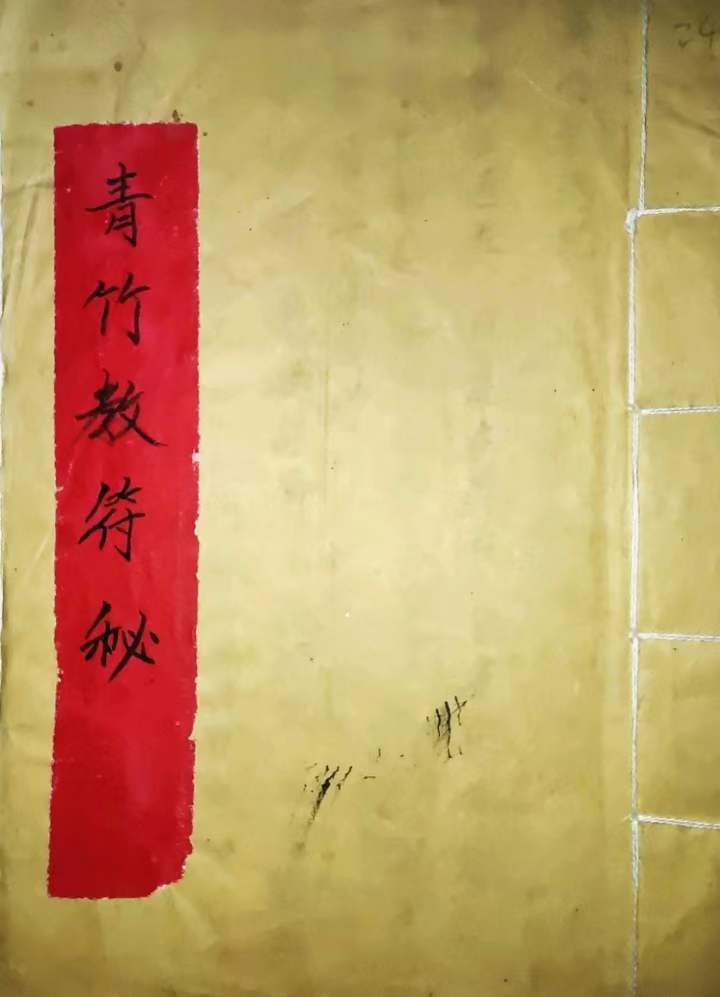 青竹教符秘